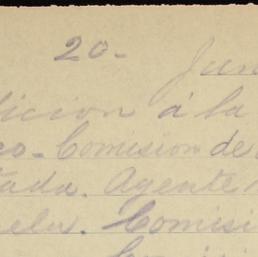 20-
Jun
dicion á la
co-Comision de
tada. Agente
uela. Comisi